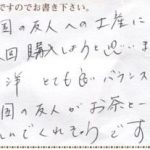 ですのでお書き下さい。
国の友人への土産に
回購入しようと思いま
洋 とても良いバランス
国の友人がお茶と一
んでくれそうです